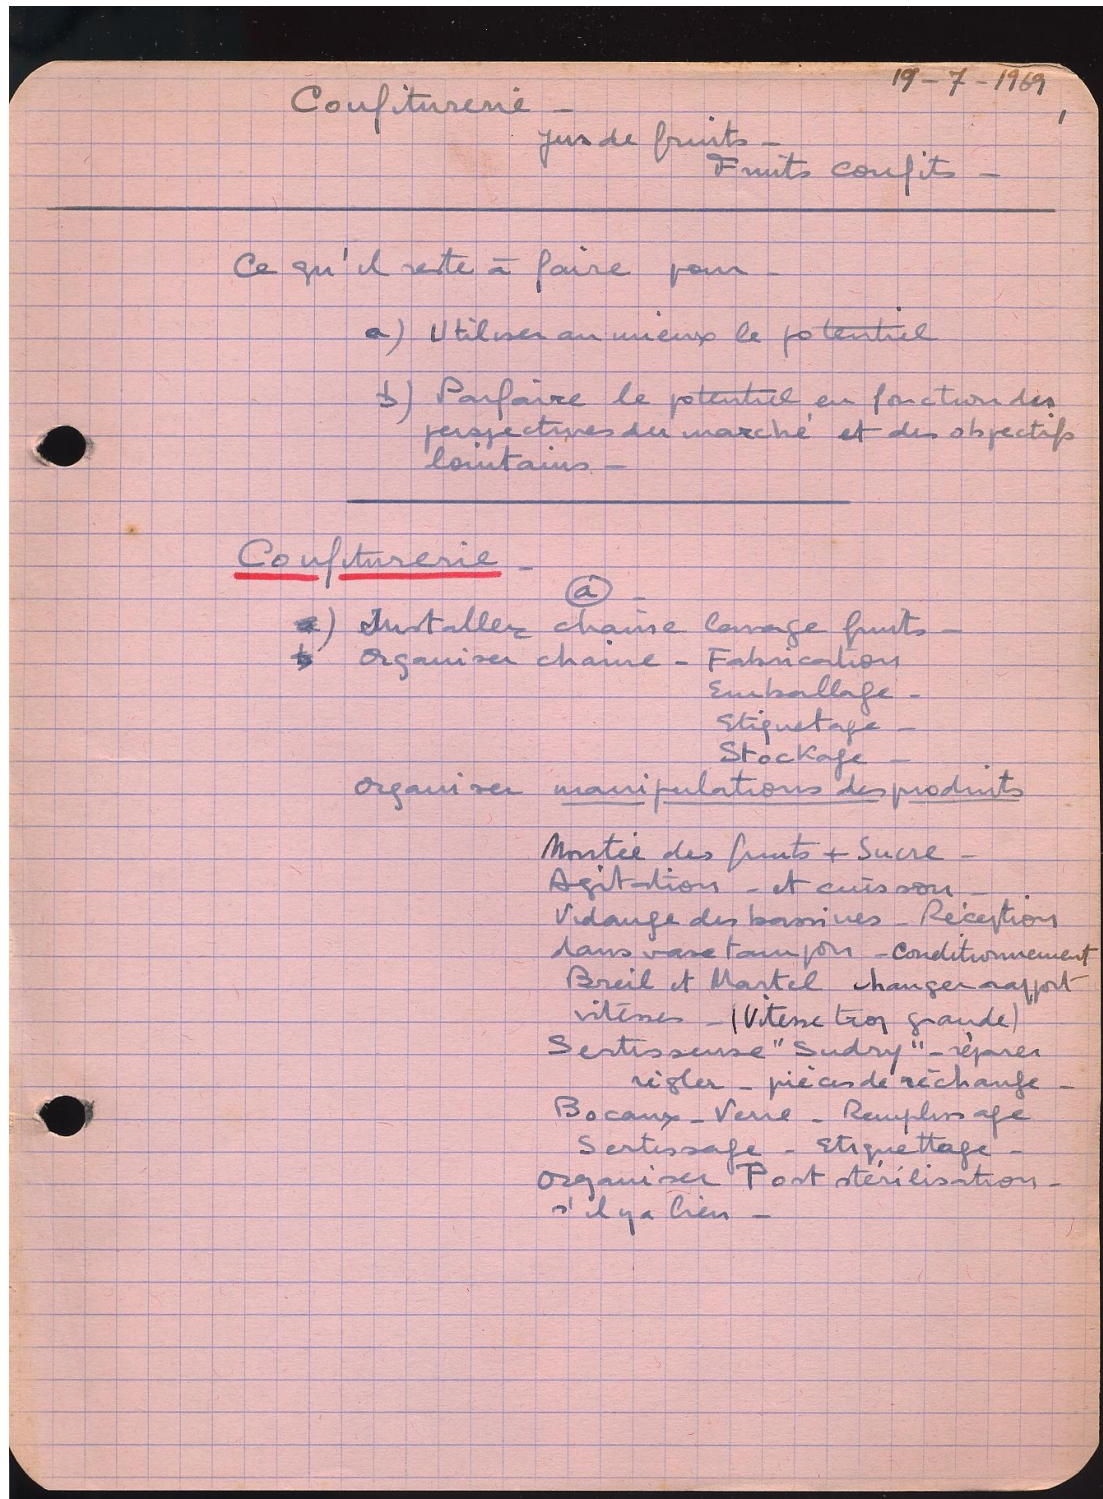 19-7-1969
1
Confiturerie -
Jus de fruits -
Fruits confits -
Ce qu'il reste à faire pour -
a) Utiliser au mieux le potentiel
b) Parfaire le potentiel en fonction des
perspectives du marché et des objectifs
lointains -
Confiturerie -
a -
a) Installer chaine lavage fruits -
b Organiser chaine - Fabrication
Emballage -
Etiquetage -
Stockage -
Organiser manipulations des produits
Montée des fruits + Sucre -
Agitation - et cuisson -
Vidange des bassines - Réception
dans vase tampon - Conditionnement
Breil et Martel changer rapport
vitesses - (Vitesse trop grande)
Sertisseuse "Sudry" - réparer
régler - pièces de rechange -
Bocaux - Verre - Remplissage
Sertissage - Etiquettage -
Organiser Post stérilisation -
s'il y a lieu -